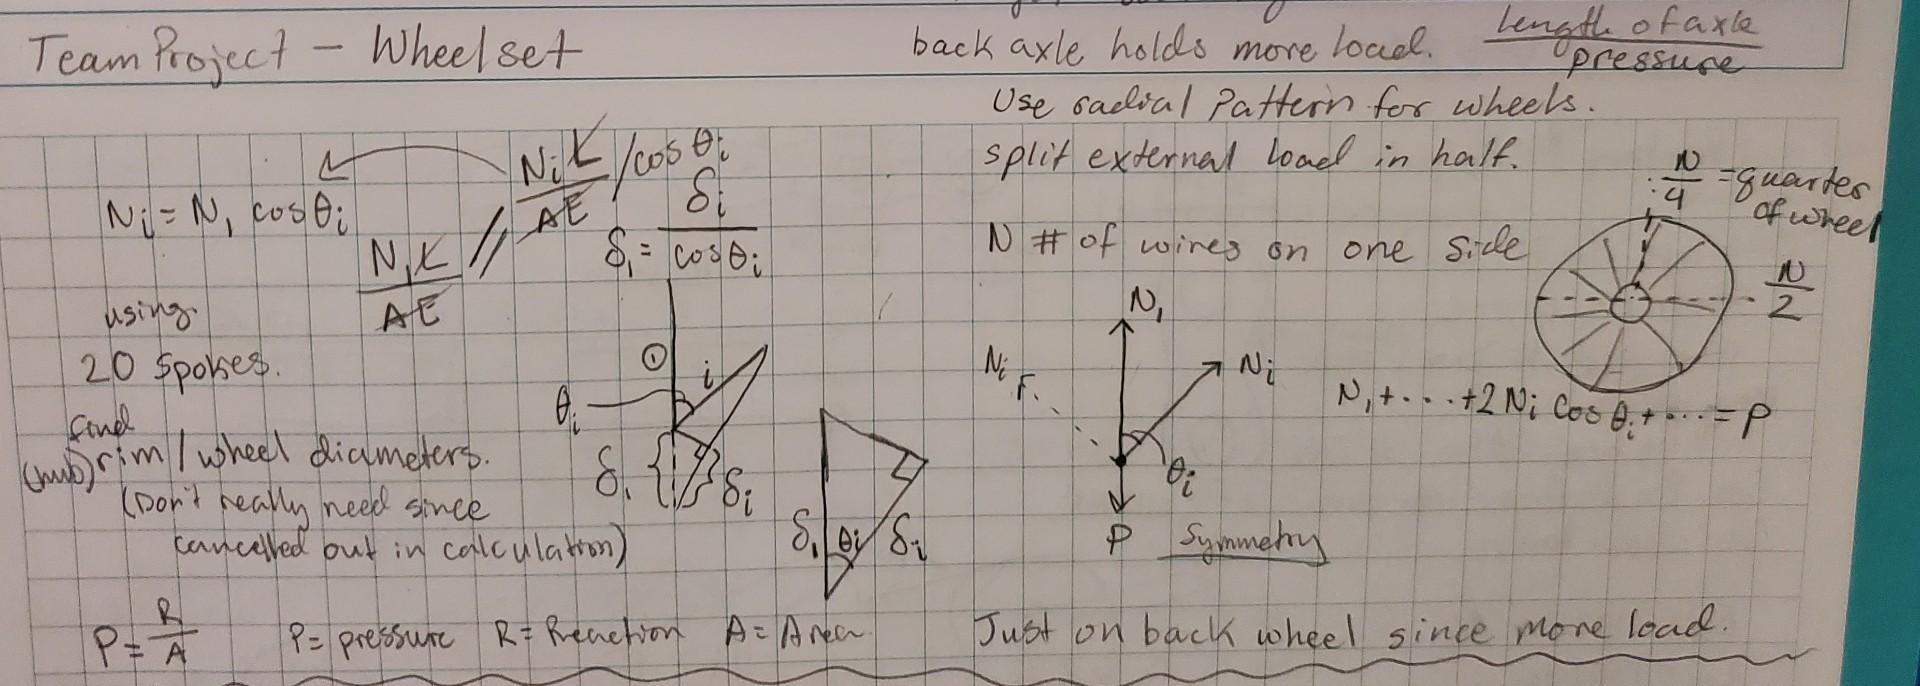 Team Project - Wheelset
back axle holds more load. Length of axle / pressure
Use radial Pattern for wheels.
split external load in half.
N/4 = quarter of wheel
N # of wires on one side
N/2
Ni L / AE / cos θi
Ni = N1 cos θi
N1 L / AE //
δ1 = δi / cos θi
using
20 spokes.
find
(hub) rim / wheel diameters.
(Don't really need since
cancelled out in calculation)
① i
θi
δ1 δi
δ1 θi δi
N1
Ni Ni
θi
P Symmetry
N1 + . . . + 2 Ni Cos θi + . . . = P
P = R/A P = pressure R = Reaction A = Area
Just on back wheel since more load.